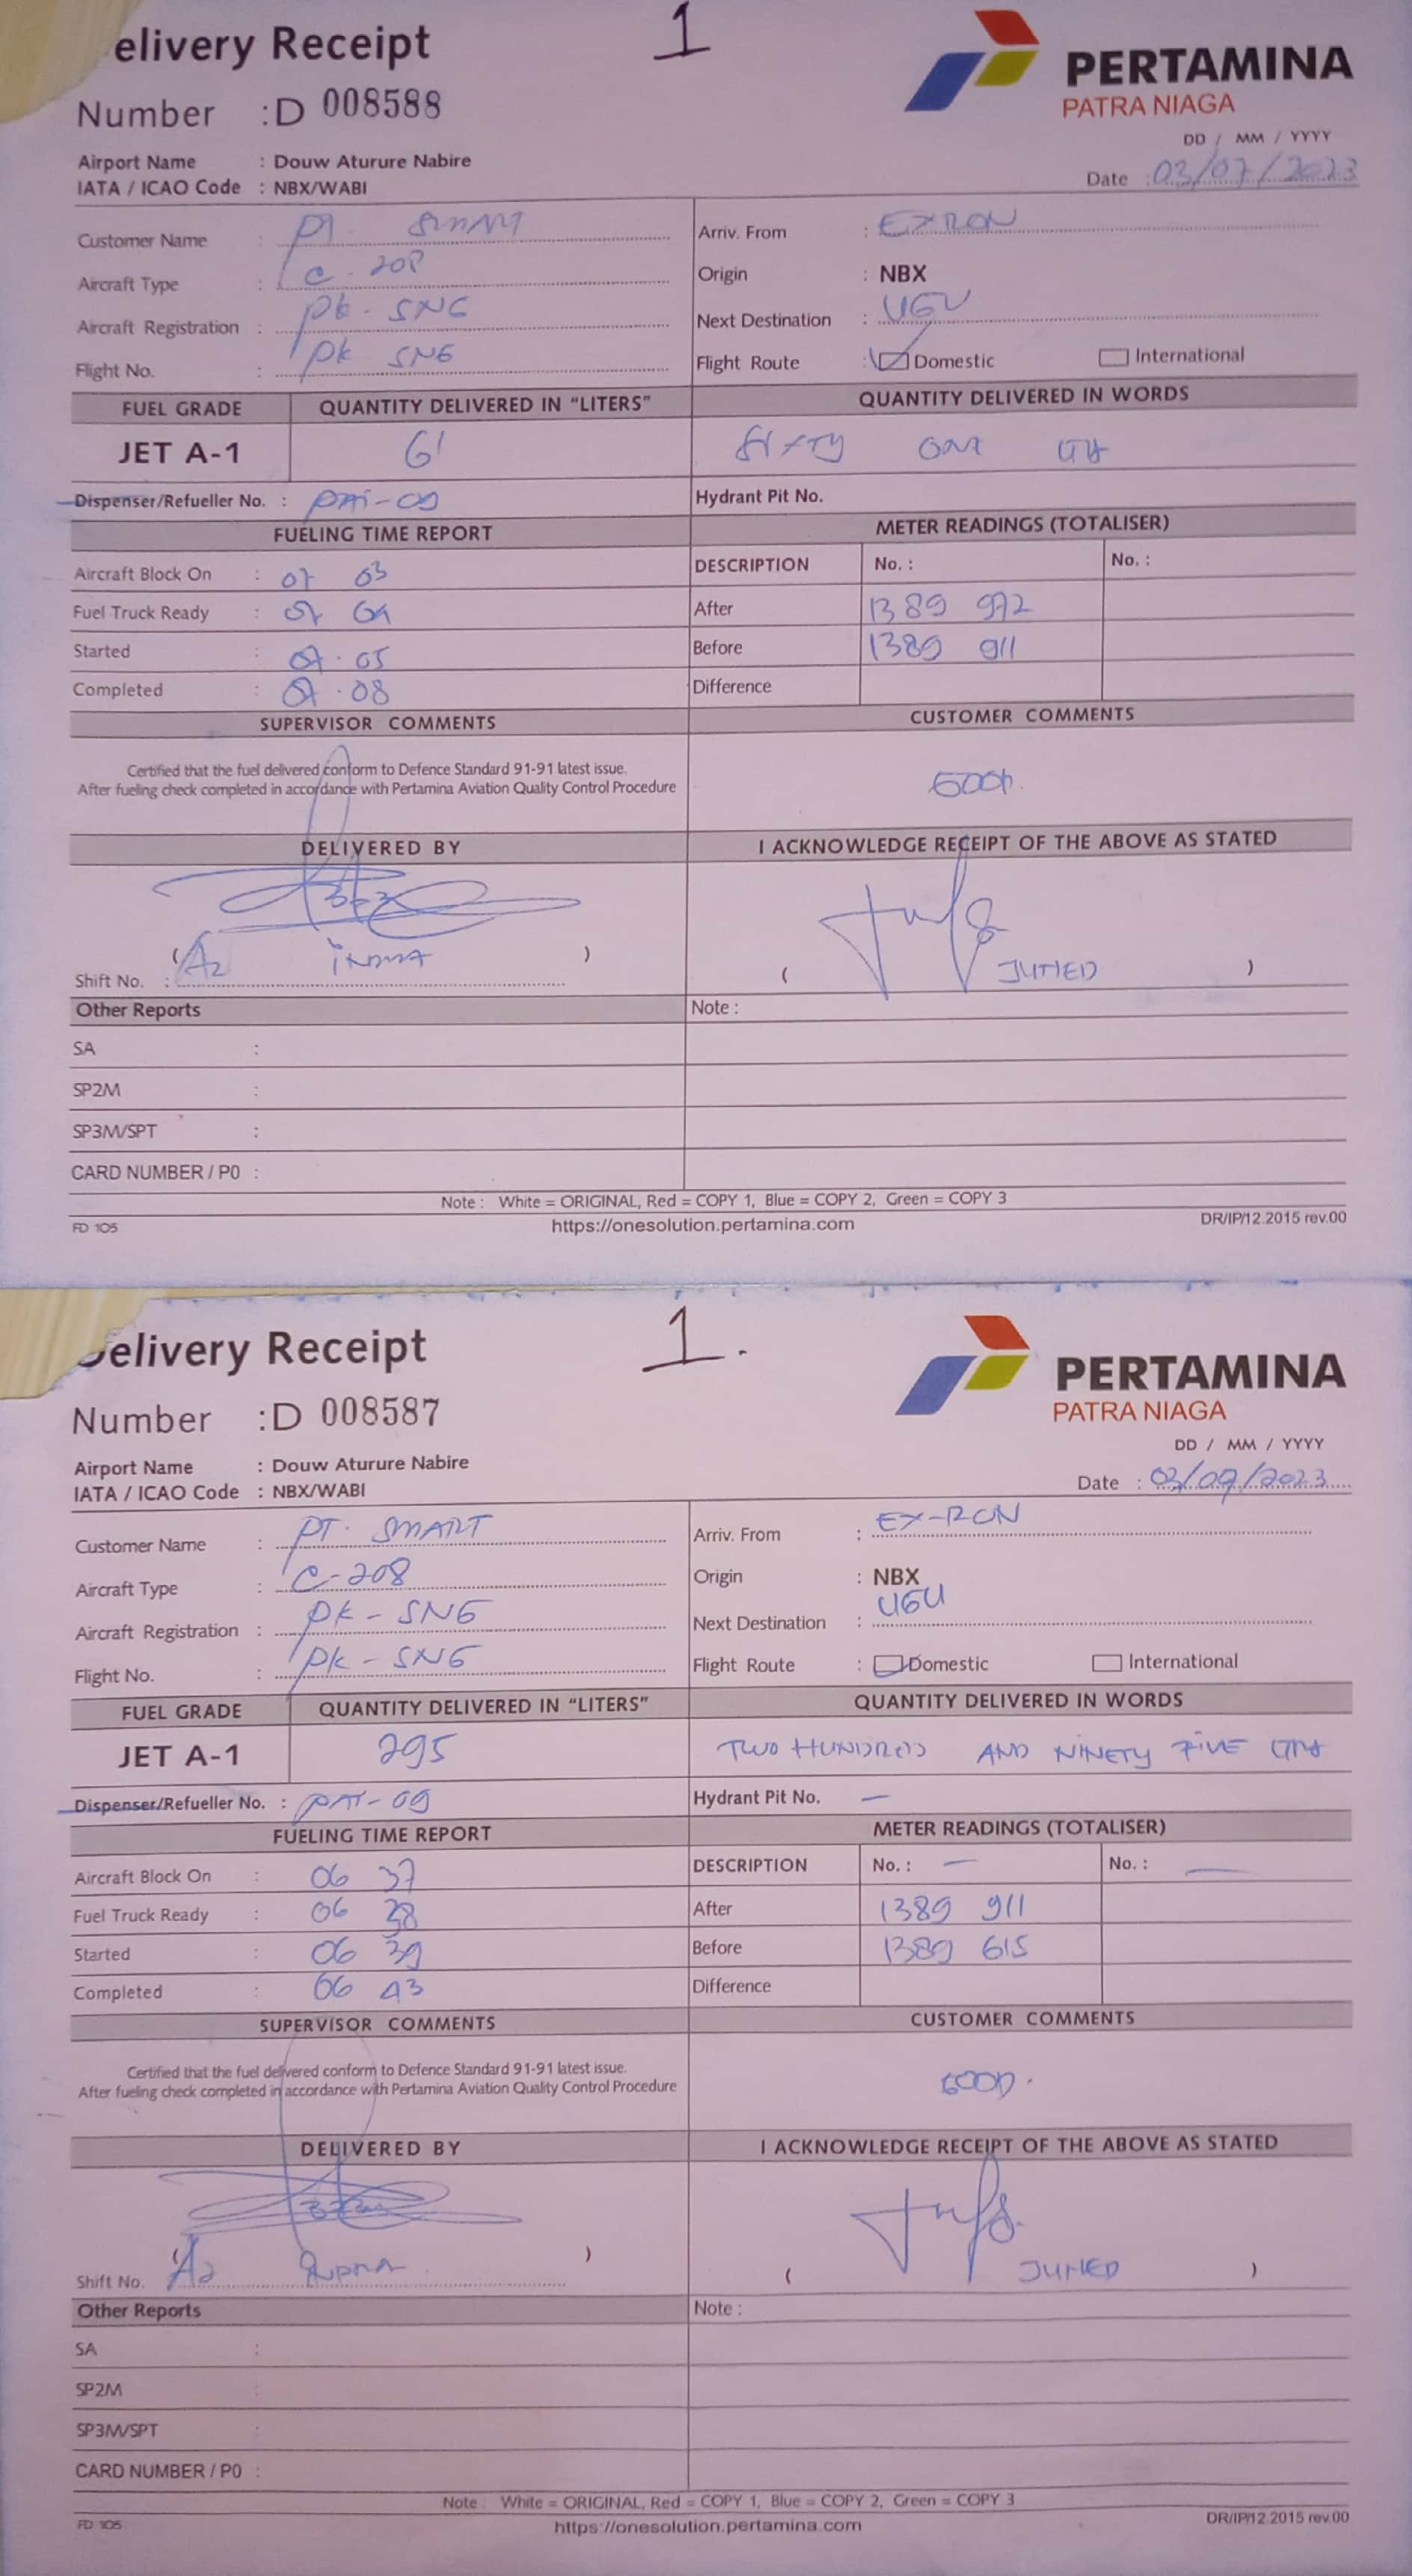 elivery Receipt 1
PERTAMINA
PATRA NIAGA
Number : D 008588
DD / MM / YYYY
Airport Name : Douw Aturure Nabire
Date : 03/07/2023
IATA / ICAO Code : NBX/WABI
Customer Name : PT. SMART Arriv. From : EX RON
Aircraft Type : C-208 Origin : NBX
Aircraft Registration : PK-SNG Next Destination : UGU
Flight No. : PK SNG Flight Route : Domestic International
FUEL GRADE QUANTITY DELIVERED IN “LITERS” QUANTITY DELIVERED IN WORDS
JET A-1 61 SIXTY ONE LTR
Dispenser/Refueller No. : PAT-09 Hydrant Pit No.
FUELING TIME REPORT METER READINGS (TOTALISER)
Aircraft Block On : 07 03 DESCRIPTION No. : No. :
Fuel Truck Ready : 07 04 After 1389 972
Started : 07.05 Before 1389 911
Completed : 07.08 Difference
SUPERVISOR COMMENTS CUSTOMER COMMENTS
Certified that the fuel delivered conform to Defence Standard 91-91 latest issue.
After fueling check completed in accordance with Pertamina Aviation Quality Control Procedure
GOOD.
DELIVERED BY I ACKNOWLEDGE RECEIPT OF THE ABOVE AS STATED
Shift No. : ( A2 ) ( JUMED )
Other Reports Note :
SA :
SP2M :
SP3M/SPT :
CARD NUMBER / P0 :
Note : White = ORIGINAL, Red = COPY 1, Blue = COPY 2, Green = COPY 3
FD 105 https://onesolution.pertamina.com DR/IP/12.2015 rev.00
elivery Receipt 1.
PERTAMINA
PATRA NIAGA
Number : D 008587
DD / MM / YYYY
Airport Name : Douw Aturure Nabire
Date : 03/07/2023
IATA / ICAO Code : NBX/WABI
Customer Name : PT. SMART Arriv. From : EX-RON
Aircraft Type : C-208 Origin : NBX
Aircraft Registration : PK-SNG Next Destination : UGU
Flight No. : PK-SNG Flight Route : Domestic International
FUEL GRADE QUANTITY DELIVERED IN “LITERS” QUANTITY DELIVERED IN WORDS
JET A-1 295 TWO HUNDRED AND NINETY FIVE LTR
Dispenser/Refueller No. : PAT-09 Hydrant Pit No. —
FUELING TIME REPORT METER READINGS (TOTALISER)
Aircraft Block On : 06 37 DESCRIPTION No. : — No. : —
Fuel Truck Ready : 06 38 After 1389 911
Started : 06 39 Before 1389 615
Completed : 06 43 Difference
SUPERVISOR COMMENTS CUSTOMER COMMENTS
Certified that the fuel delivered conform to Defence Standard 91-91 latest issue.
After fueling check completed in accordance with Pertamina Aviation Quality Control Procedure
GOOD.
DELIVERED BY I ACKNOWLEDGE RECEIPT OF THE ABOVE AS STATED
Shift No. ( A2 ) ( JUMED )
Other Reports Note :
SA :
SP2M :
SP3M/SPT :
CARD NUMBER / P0 :
Note : White = ORIGINAL, Red = COPY 1, Blue = COPY 2, Green = COPY 3
FD 105 https://onesolution.pertamina.com DR/IP/12.2015 rev.00